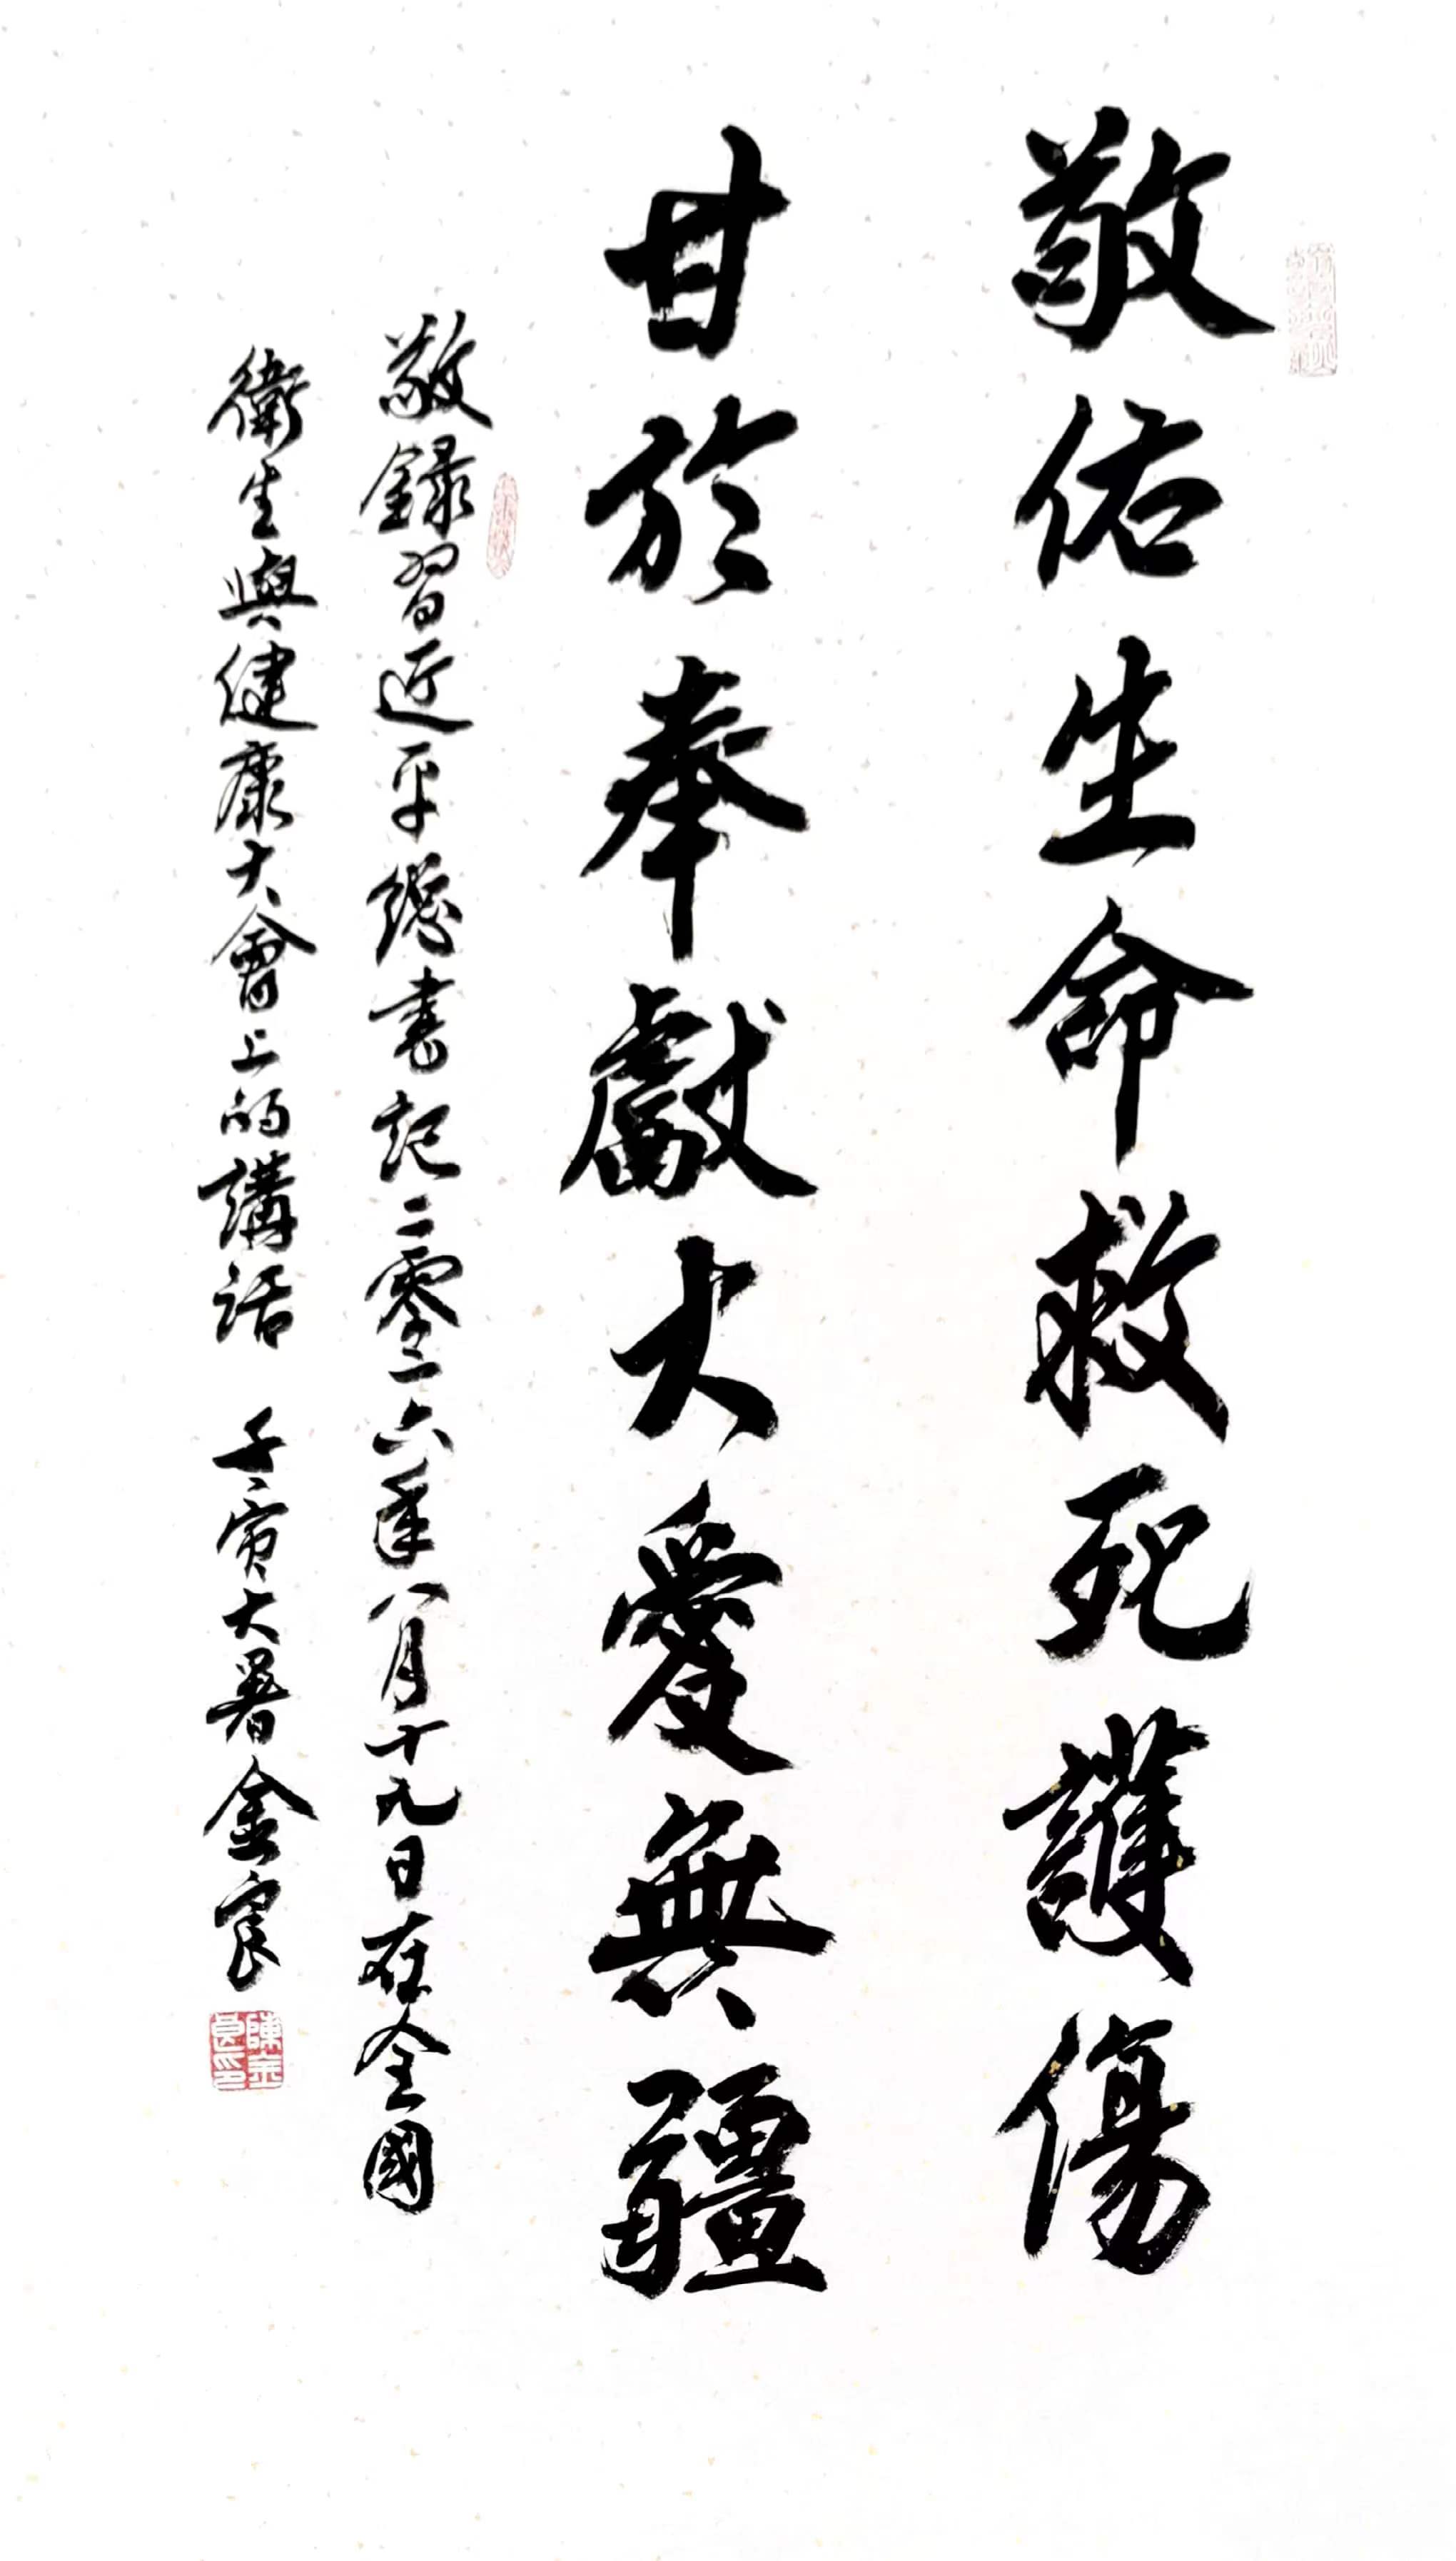 敬佑生命救死護傷
甘於奉獻大愛無疆
敬録習近平總書記二零一六年八月十九日在全國
衛生與健康大會上的講話 壬寅大暑金良
陳金良印